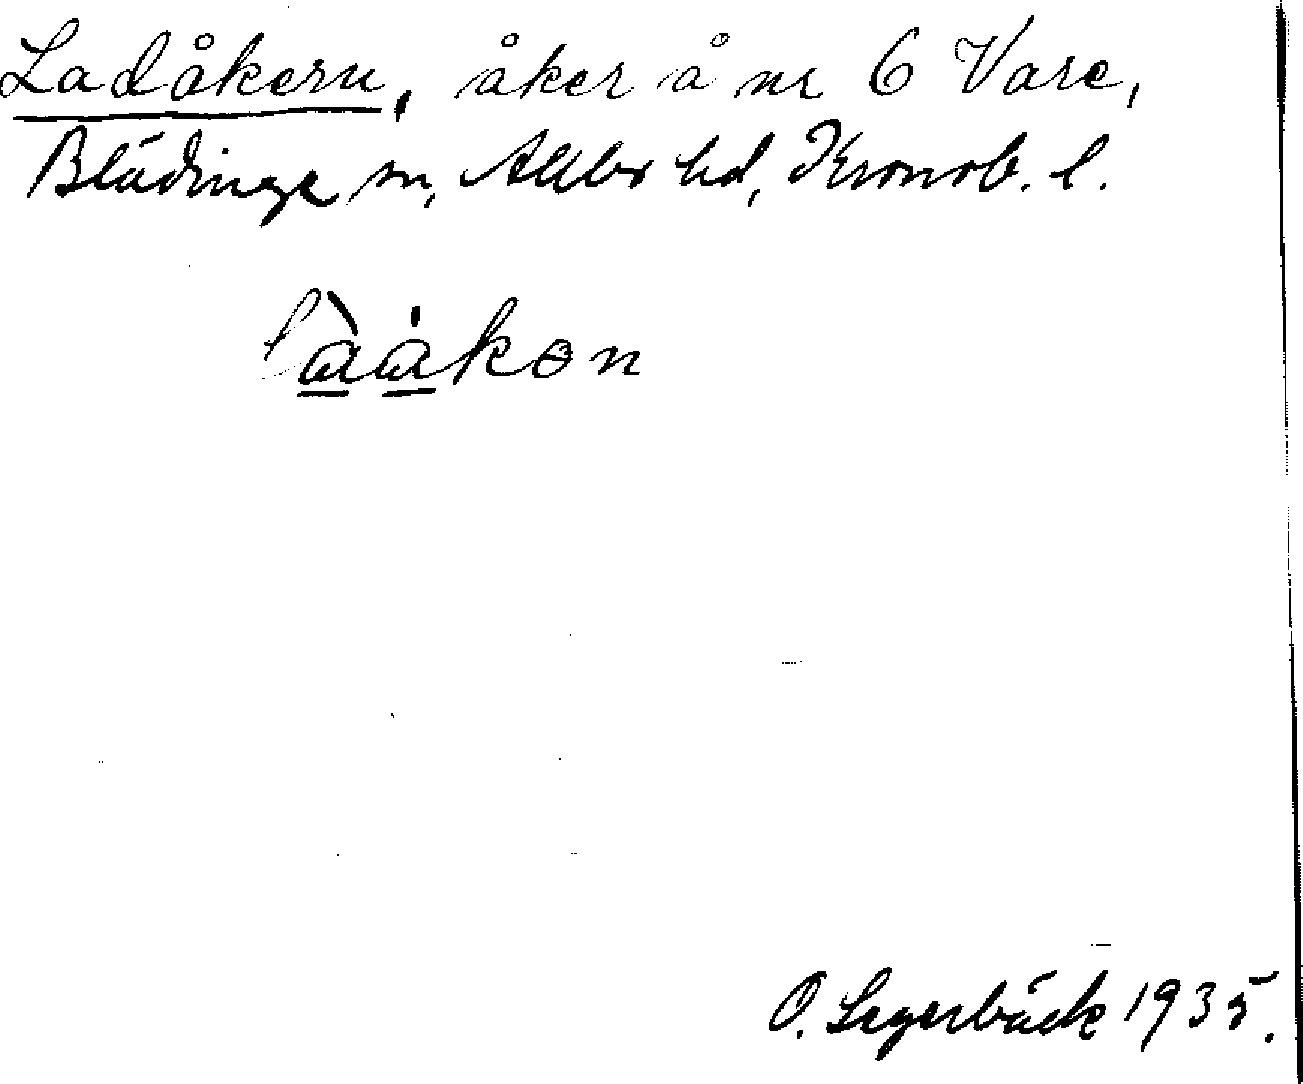 Ladåkern, åker å nr 6 Vare,
Blädinge sn, Allbo hd, Kronob. l.
lååkɵn
O. Segerbäck 1935.